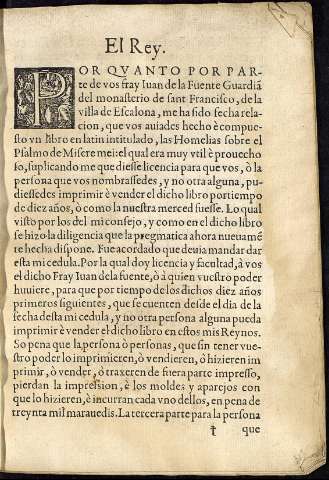 El Rey.
POR QVANTO POR PAR-
te de vos fray Iuan de la Fuente Guardiã
del monasterio de sant Francisco, de la
villa de Escalona, me ha sido fecha rela
cion, que vos auiades hecho è compue-
sto vn libro en latin intitulado, las Homelias sobre el
Psalmo de Misere mei: el qual era muy vtil è prouecho
so, suplicando me que diesse licencia para que vos, ò la
persona que vos nombrassedes, y no otra alguna, pu-
diessedes imprimir è vender el dicho libro por tiempo
de diez años, ò como la nuestra merced fuesse. Lo qual
visto por los del mi consejo, y como en el dicho libro
se hizo la diligencia que la pregmatica ahora nueuamẽ
te hecha dispone. Fue acordado que deuia mandar dar
esta mi cedula. Por la qual doy licencia y facultad, à vos
el dicho Fray Iuan dela fuente, ò à quien vuestro poder
huuiere, para que por tiempo de los dichos diez años
primeros siguientes, que se cuenten desde el dia de la
fecha desta mi cedula, y no otra persona alguna pueda
imprimir è vender el dicho libro en estos mis Reynos.
So pena que la persona ò personas, que sin tener vue-
stro poder lo imprimieren, ò vendieren, ò hizieren im
primir, ò vender, ò traxeren de fuera parte impresso,
pierdan la impression, è los moldes y aparejos con
que lo hizieren, è incurran cada vno dellos, en pena de
treynta mil marauedis. La tercera parte para la persona
† que